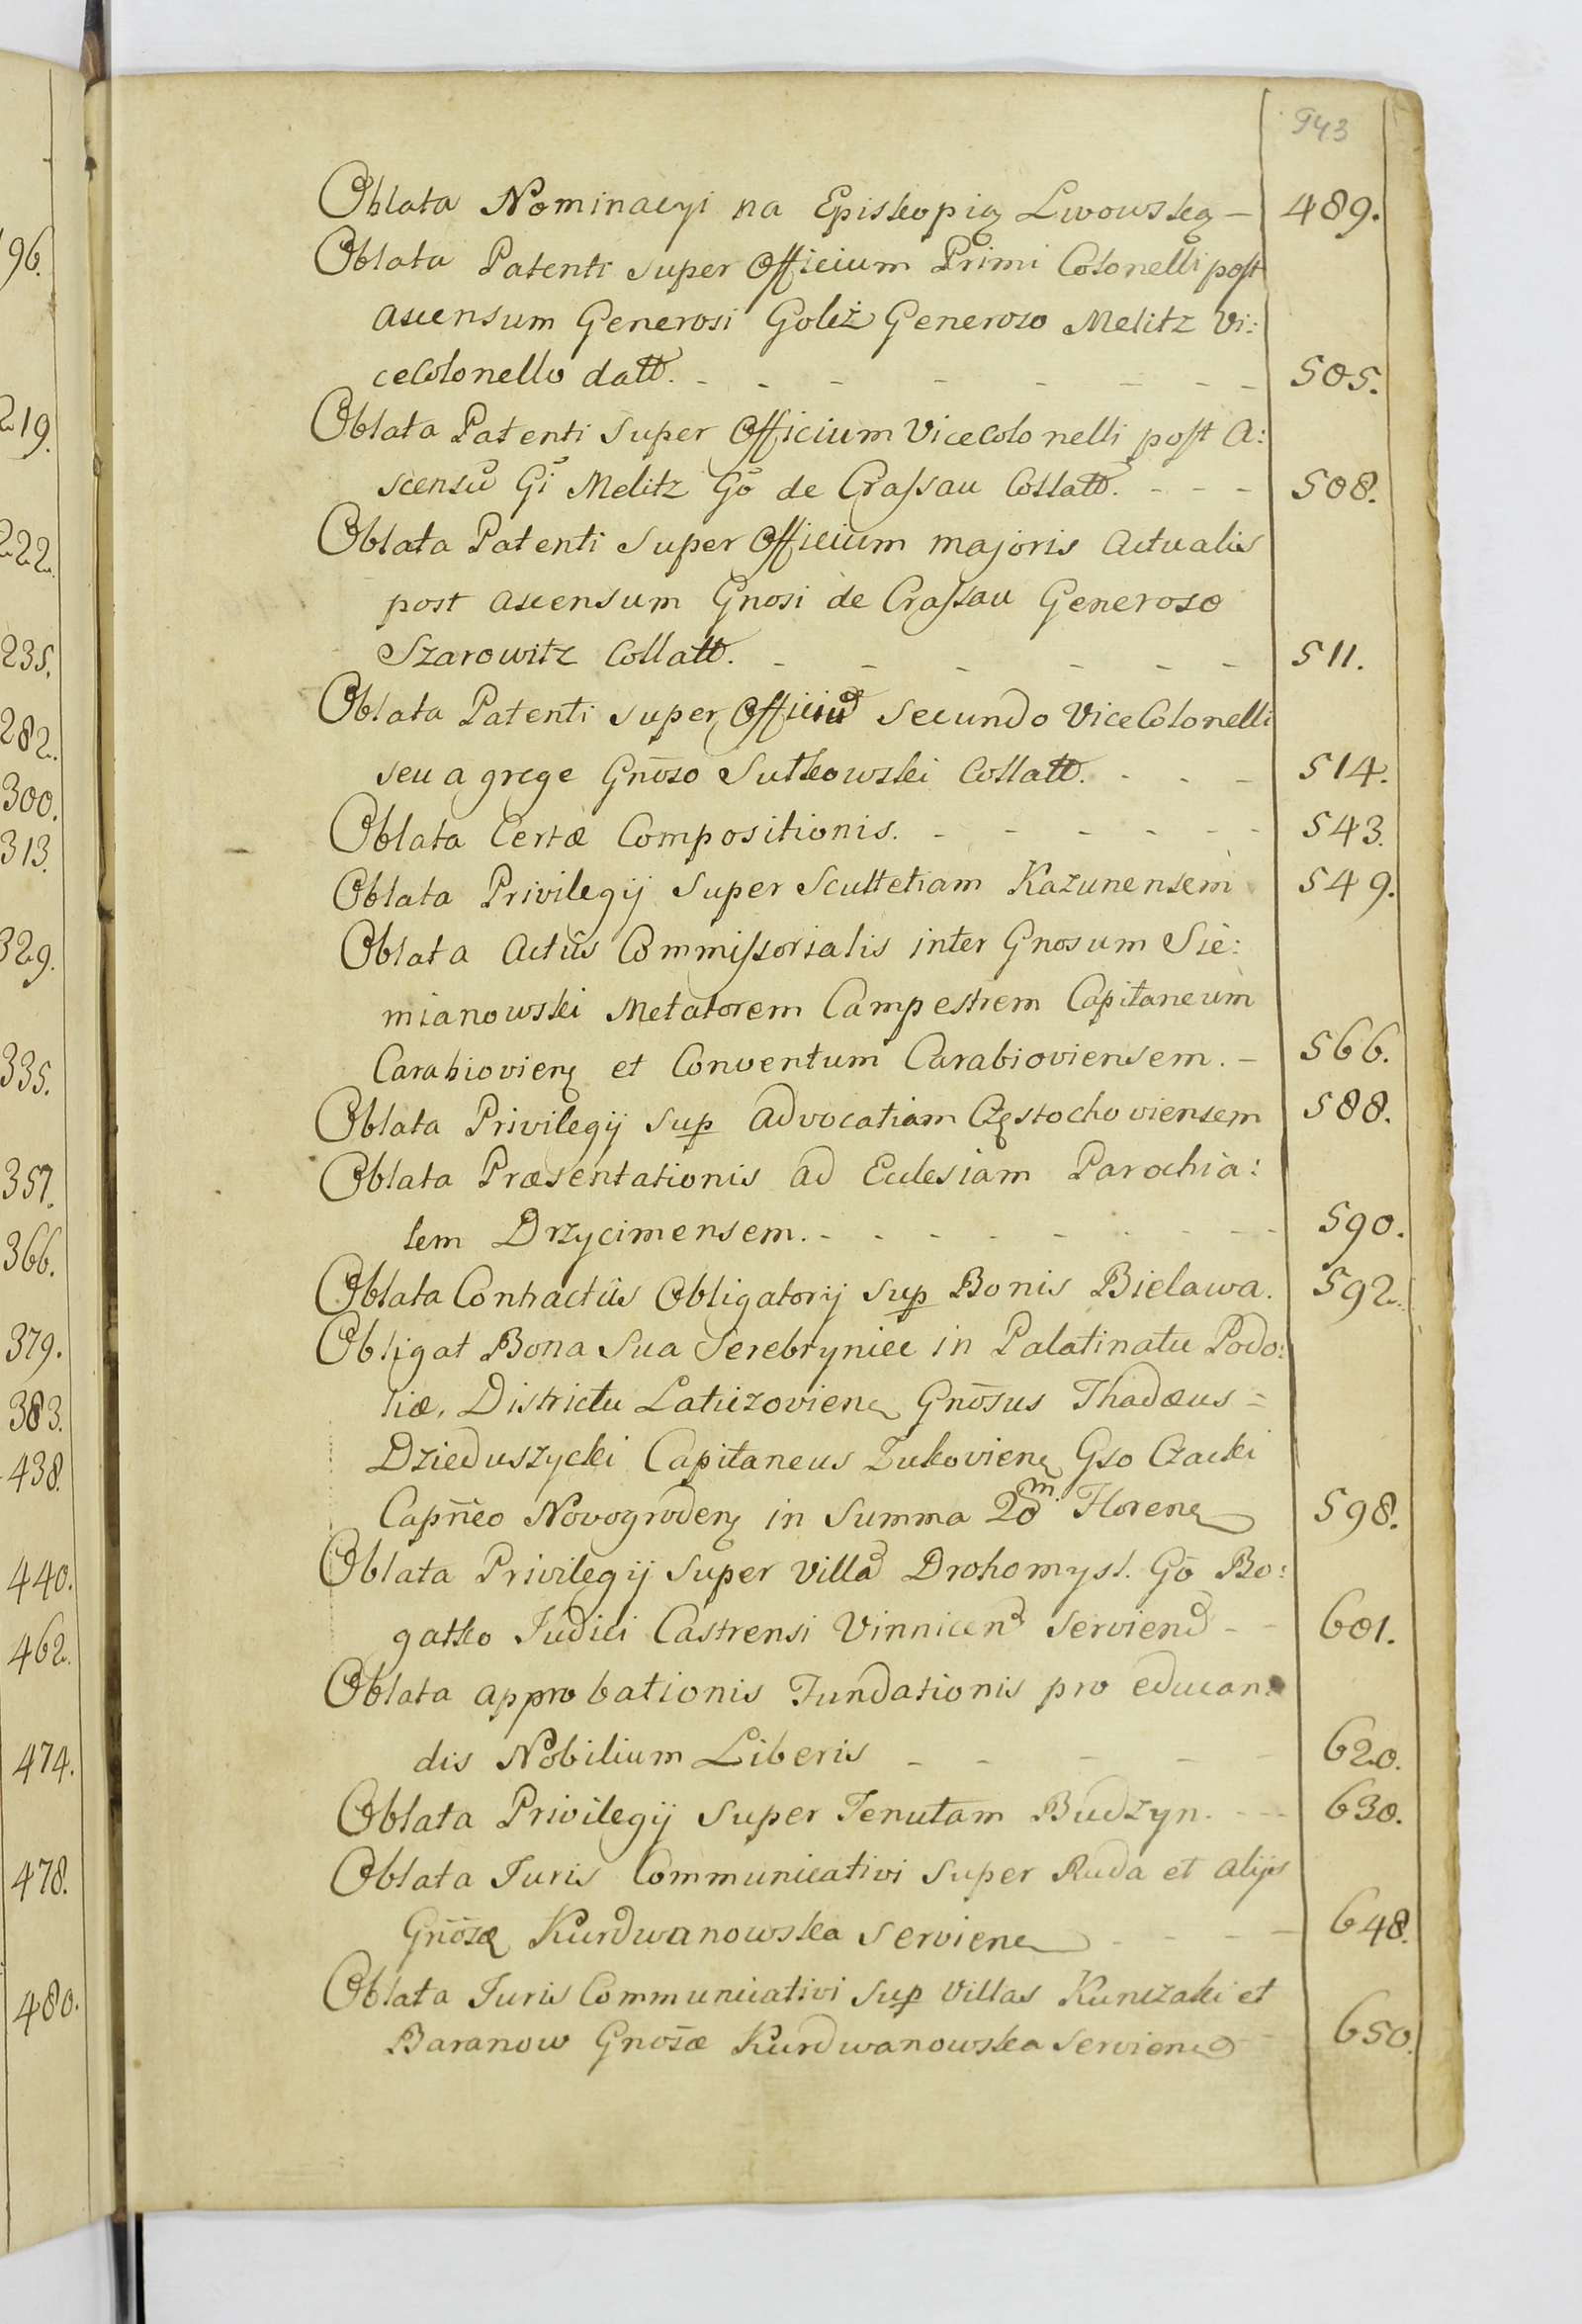 943
Oblata Nominacyi na Episkopią Lwowską – 489.
Oblata Patenti super Officium Primi Colonelli post
ascensum Generosi Goltz Generoso Melitz Vi:
ceColonello datt. - - - - - - - - 505.
Oblata Patenti super Officium ViceColonelli post A:
scensū Gi Melitz Go de Crassau Collatt. - - - 508.
Oblata Patenti super Officium majoris actualis
post ascensum Gnosi de Crassau Generoso
Szarowitz Collatt. - - - - - - 511.
Oblata Patenti super Officiu Secundo ViceColonelli
seu a grege Gnōso Sutkowski Collatt. - - - 514.
Oblata Certæ Compositionis. - - - - - - 543.
Oblata Privilegij super Scultetiam Kazunensem 549.
Oblata Actûs Commissorialis inter Gnosum Sie:
mianowski Metatorem Campestrem Capitaneum
Carabiovien et Conventum Carabioviensem. – 566.
Oblata Privilegij sup advocatiam Częstochoviensem 588.
Oblata Præsentationis ad Ecclesiam Parochia:
lem Drzycimensem. - - - - - - - - 590.
Oblata Contractûs Obligatorij sup Bonis Bielawa. 592.
Obligat Bona sua Serebryniec in Palatinatu Podo:
liæ, Districtu Laticzovien Gnōsus Thadæus =
Dzieduszycki Capitaneus Zukovien Gso Czacki
Capn̄eo Novogroden in Summa 20 m. Floren 598.
Oblata Privilegij super villa Drohomysl. Gō Bo:
gatko Judici Castrensi Vinnicen servien - - 601.
Oblata approbationis Fundationis pro educan:
dis Nobilium Liberis - - - - 620.
Oblata Privilegij super Tenutam Budzyn. - - - 630.
Oblata Juris Communicativi super Ruda et alijs
Gnōsæ Kurdwanowska servien - - - - 648.
Oblata Juris Communicativi sup Villas Kunczaki et
Baranow Gnōsæ Kurdwanowska servien - 650.
196.
219.
222.
235.
282.
300.
313.
329.
335.
357.
366.
379.
383.
438.
440.
462.
474.
478.
480.